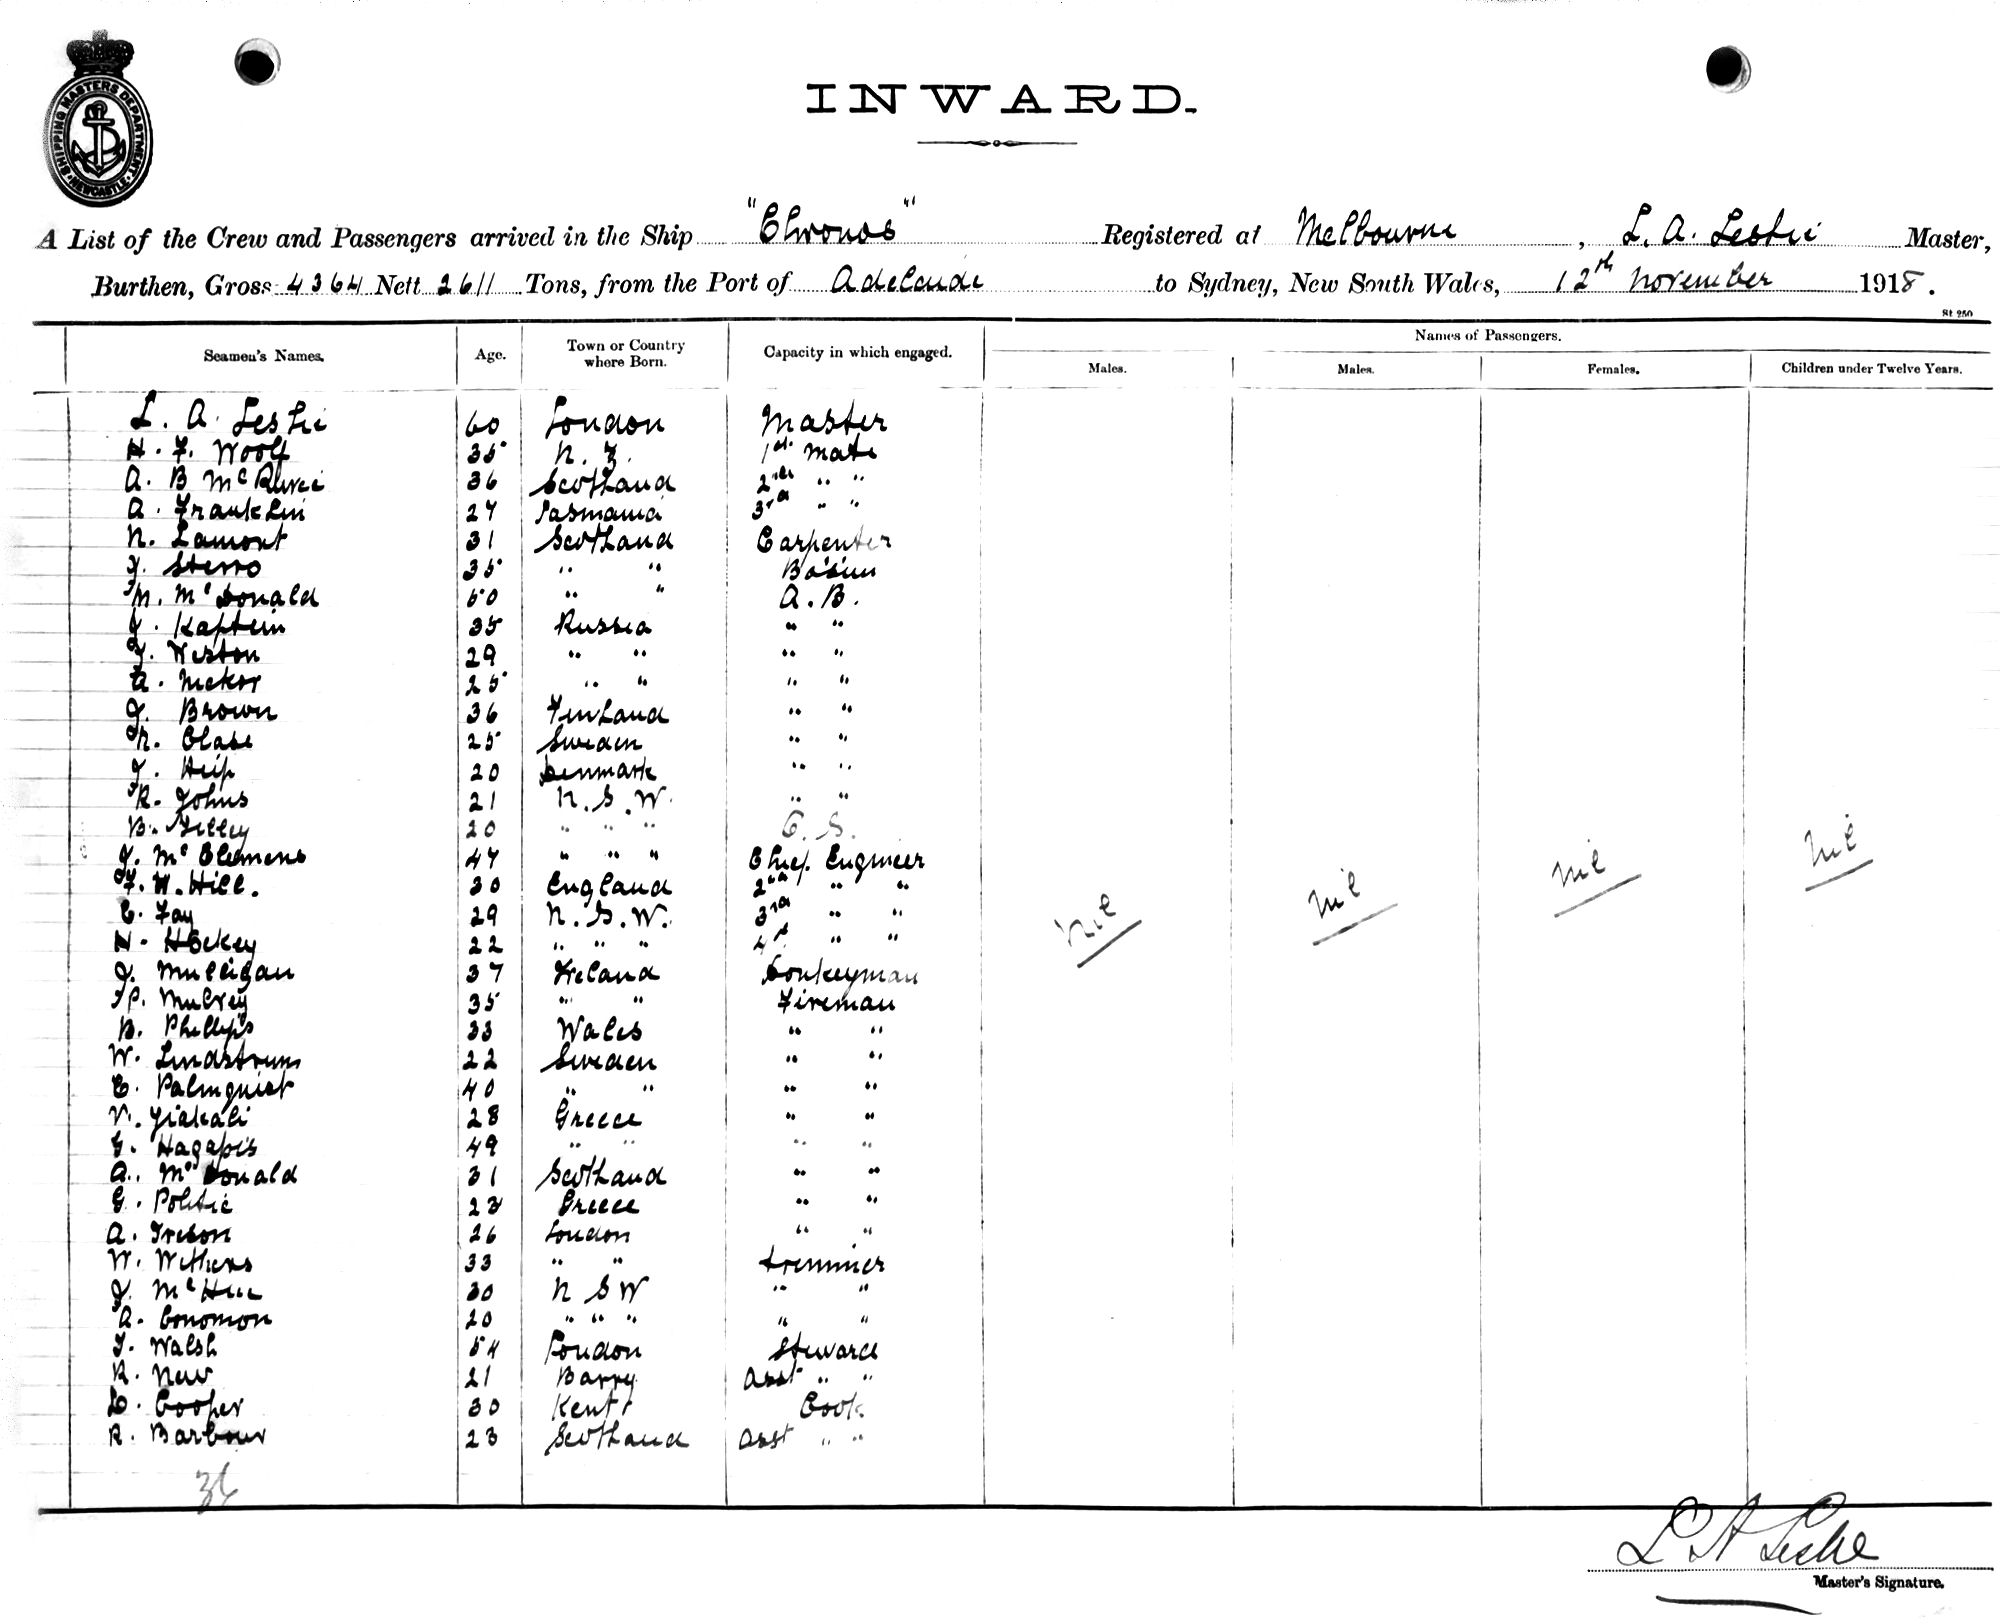 SHIPPING MASTERS DEPARTMENT
NEWCASTLE
INWARD.
A List of the Crew and Passengers arrived in the Ship "Chronos" Registered at Melbourne, L. A. Leslie Master,
Burthen, Gross 4364 Nett 2611 Tons, from the Port of Adelaide to Sydney, New South Wales, 12th November 1918.
St 250
Seamen's Names. Age. Town or Country where Born. Capacity in which engaged. Names of Passengers.
Males. Males. Females. Children under Twelve Years.
L. A. Leslie 60 London Master
H. F. Woolf 35 N. Z. 1st Mate
A. B Mc 36 Scotland 2nd " "
A. Franklin 27 Tasmania 3rd " "
N. Lamont 31 Scotland Carpenter
J. 35 " " Bo's'un
M. McDonald 50 " " A. B.
J. Kaptein 35 Russia " "
J. Weston 29 " " " "
A. 25 " " " "
J. Brown 36 Finland " "
N. 25 Sweden " "
J. Heip 20 Denmark " "
R. Johns 21 N. S. W. " "
B. 20 " " " O. S.
J. McClemens 47 " " " Chief Engineer
F. W. Hill. 30 England 2nd " "
C. Fay 29 N. S. W. 3rd " "
N. Hockey 22 " " " 4th " "
J. Mulligan 37 Ireland Donkeyman
P. Mulvey 35 " " Fireman
B. Phillips 33 Wales " "
W. Lindstrum 22 Sweden " "
C. Palmquist 40 " " " "
V. Giakali 28 Greece " "
G. Hagapis 49 " " " "
A. McDonald 31 Scotland " "
G. Politic 23 Greece " "
A. Ireson 26 London " "
W. Withers 33 " " trimmer
J. Mc 30 N S W " "
A. Conomon 20 " " " " "
J. Walsh 54 London Steward
R. New 21 Barry Asst " "
L. Cooper 30 Kent Cook
R. Barbour 23 Scotland Asst " "
nil nil nil nil
36
L A Leslie
Master's Signature.